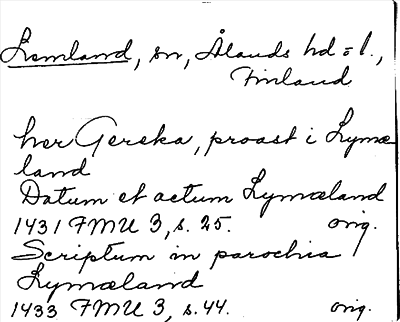 Lemland, sn, Ålands hd = l.,
Finland
her Gereka, proast i Lymæ
land
Datum et actum Lymæland
1431 FMU 3, s. 25. orig.
Scriptum in parochia
Lymæland
1433 FMU 3, s. 44. orig.